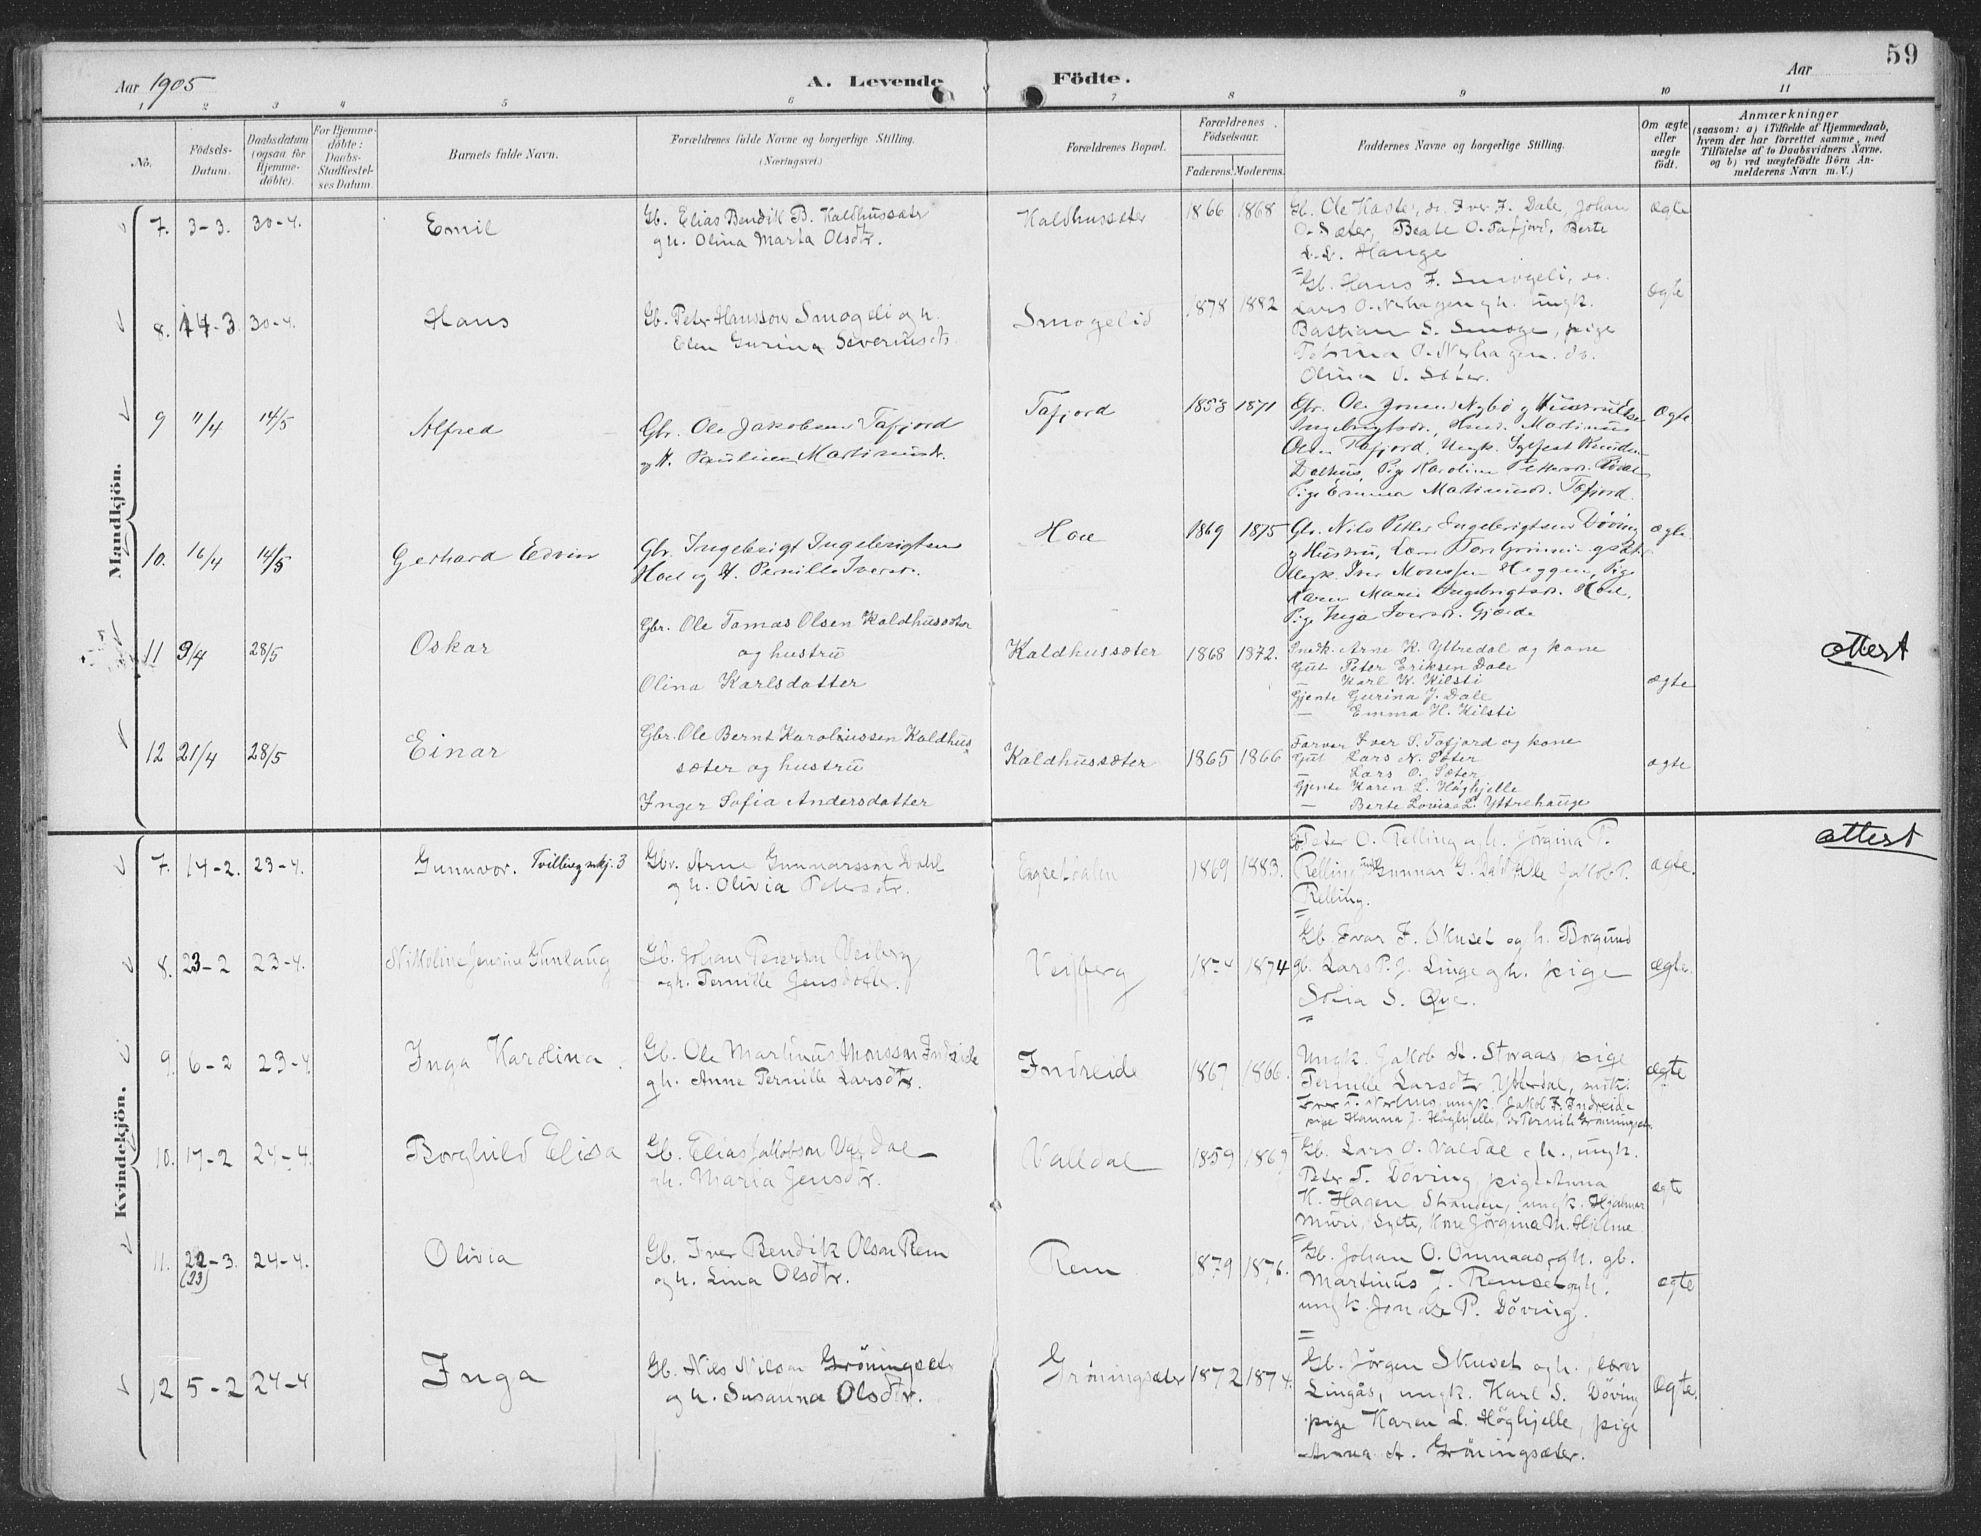 59
Aar 1905
A. Levende Födte.
Aar
1 2 3 4 5 6 7 8 9 10 11
No.
Födsels-Datum.
Daabsdatum (ogsaa for Hjemme-döbte).
For Hjemme-döbte: Daabs-Stadfæstel-ses Datum.
Barnets fulde Navn.
Forældrenes fulde Navne og borgerlige Stilling. (Næringsvei.)
Forældrenes Bopæl.
Forældrenes Födselsaar.
Faderens. Moderens.
Faddernes Navne og borgerlige Stilling.
Om ægte eller uægte födt.
Anmærkninger
(saasom: a) i Tilfælde af Hjemmedaab,
hvem der har forrettet samme, med
Tilföielse af to Daabsvidners Navne.
og b) ved uægtefödte Börn An-
melderens Navn m. V.)
Mandkjön.
7. 3-3. 30-4. Emil
Gb. Elias Bendik B. Kaldhussæter
gh. Olina Marta Olsdtr.
Kaldhussæter 1866 1868
Gb. Ole Kaste, do. Iver J. Dale, Johan
O. Sæter, Beate O. Tafjord, Berte
L. L. Hauge
ægte
8. 14-3 30-4. Hans
Gb. Peter Hansson Smogeli og h.
Elen Gurina Severinsdt.
Smogelid 1878 1882
Gb. Hans F. Smogeli, do.
Lars O. Nerhagen gh. ungk.
Bastian S. Smoge, pige
Petrina O. Nerhagen. do.
Olina O. Sæter.
ægte
9 11/4 14/5 Alfred
Gbr. Ole Jakobsen Tafjord
og H. Pauline Martinusdr.
Tafjord 1853 1871
Gbr. Ole Jonsen Nybö og Hustru Else
Ingebrigtsdr., Martinus
Olsen Tafjord, Ungk. Sylfest Knudsen
Dalhus, Pige Karoline Pettersdr.
Pige Emma Martinusdr. Tafjord.
Ægte
10. 16/4 14/5 Gerhard Edvin
Gbr. Ingebrigt Ingebrigtsen
Hoel og H. Pernille Iversdr.
Hoel 1869 1875
Gbr. Nils Petter Ingebrigtsen Döving
og Hustru,
Ungk. Iver Monsen Heggen, Pige
Karen Marie Ingebrigtsdr. Hoel,
Pige Inga Iversdr. Gjærde
ægte
11 9/4 28/5 Oskar
Gbr. Ole Tomas Olsen Kaldhussæter
og hustru
Olina Karlsdatter
Kaldhussæter 1868 1872.
Snedk. Arne K. Yttredal og kone
Gut Peter Eriksen Dale
— Karl K. Kilsti
Gjente Gurina J. Dale
— Emma H. Kilsti
ægte
attest
12 21/4 28/5 Einar
Gbr. Ole Bernt Karoliussen Kaldhus
sæter og hustru
Inger Sofia Andersdatter
Kaldhussæter 1865 1866
Farver Iver S. Tafjord og kone
Gut Lars N. Sæter
— Lars O. Sæter
Gjente Karen L. Höghjelle
— Berte Lovise L. Yttrehauge
ægte
Kvindekjön.
7. 14-2. 23-4. Gunnvor. Tvilling mkj. 3
Gbr. Arne Gunnarsson Dahl
og h. Olivia Petersdtr.
1869 1883.
Peter O. Relling g. h. Jörgina P.
Relling, Gunnar G. Dahl, Ole Jakob P.
Relling.
ægte.
attest
8. 23-2 23-4. Nikoline Jensine Gunlaug
Gb. Johan Peterson Veiberg
ogh. Pernille Jensdotter.
Veiberg 1874 1874
Gb. Ivar F. Skuset og h. Borgund
gb. Lars P. J. Linge gh. pige
Sofia S. Öye.
ægte.
9. 6-2 23-4 Inga Karolina.
Gb. Ole Martinus Monsson Indreide
gh. Anne Pernille Larsdtr.
Indreide 1867 1866.
Ungk. Jakob A. Storaas, pige
Pernille Larsdtr Ytterdal,
ungk. Jakob F. Indreide
pige Hanna J. Höghjelle, Pernile Gröningsæter
ægte
10. 17-2 24-4. Borghild Elisa
Gb. Elias Jakobson Valdal
gh. Maria Jensdtr.
Valldal 1859 1869
Gb. Lars O. Valdal gh., ungk.
Peter T. Döving, pige Anna
K. Hagen Stranden, ungk. Hjalmar
Muri, Sylte, Kone Jörgina M. Hjelme
ægte
11. 22-3. (23) 24-4. Olivia
Gb. Iver Bendik Olson Rem
og h. Lina Olsdtr.
Rem 1879 1876.
Gb. Johan O. Omnaas gh. gb.
Martinus J. Remset ogh.
ungk. Jon P. Döving.
ægte
12 5-2 24-4 Inga
Gb. Nils Nilson Gröningsæter
og h. Susanna Olsdtr.
Gröningsæter 1872 1874.
Gb. Jörgen Skuset ogh., lærer
Lingås, ungk. Karl S. Döving
pige Karen L. Höghjelle, pige
Anna A. Gröningsæter.
Ægte.